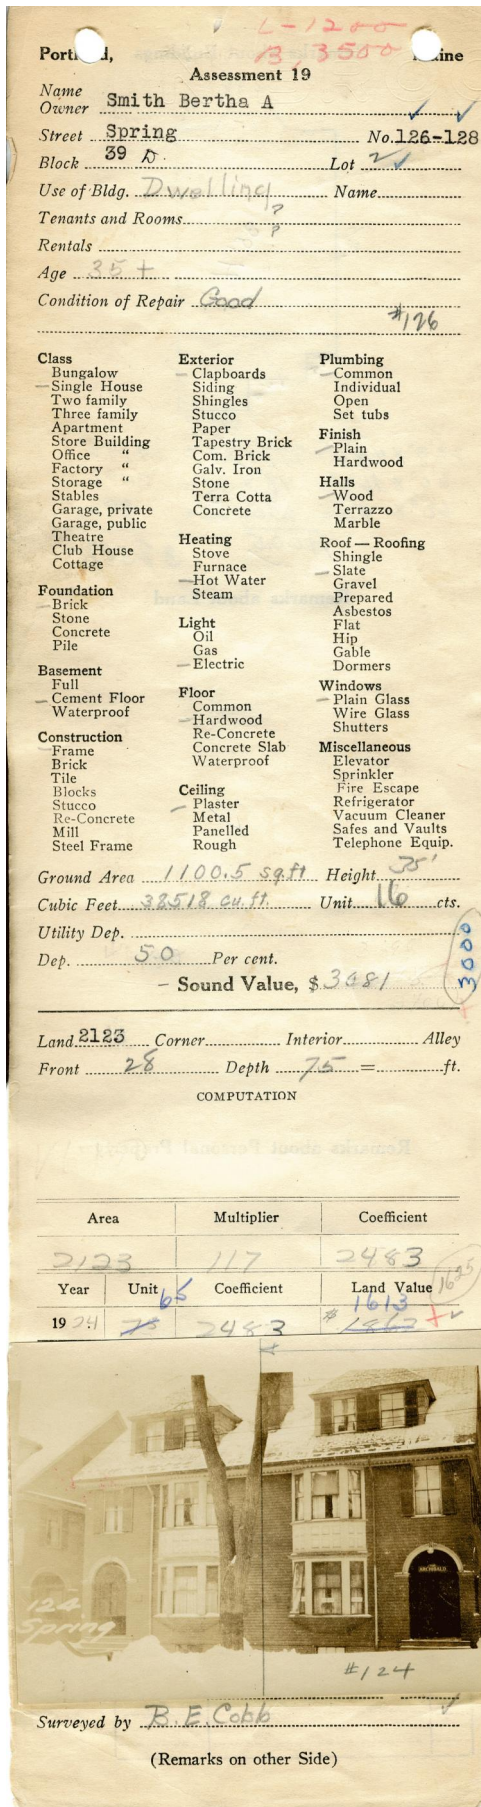 L-1200
B, 3500
Assessment 19
Name
Owner Smith Bertha A
Street Spring No. 126-128
Block 39 D. Lot 2
Use of Bldg. Dwelling Name
Tenants and Rooms ?
Rentals ?
Age 35 +
Condition of Repair Good
#126
Class
Bungalow
Single House
Two family
Three family
Apartment
Store Building
Office "
Factory "
Storage "
Stables
Garage, private
Garage, public
Theatre
Club House
Cottage
Foundation
Brick
Stone
Concrete
Pile
Basement
Full
Cement Floor
Waterproof
Construction
Frame
Brick
Tile
Blocks
Stucco
Re-Concrete
Mill
Steel Frame
Exterior
Clapboards
Siding
Shingles
Stucco
Paper
Tapestry Brick
Com. Brick
Galv. Iron
Stone
Terra Cotta
Concrete
Heating
Stove
Furnace
Hot Water
Steam
Light
Oil
Gas
Electric
Floor
Common
Hardwood
Re-Concrete
Concrete Slab
Waterproof
Ceiling
Plaster
Metal
Panelled
Rough
Plumbing
Common
Individual
Open
Set tubs
Finish
Plain
Hardwood
Halls
Wood
Terrazzo
Marble
Roof — Roofing
Shingle
Slate
Gravel
Prepared
Asbestos
Flat
Hip
Gable
Dormers
Windows
Plain Glass
Wire Glass
Shutters
Miscellaneous
Elevator
Sprinkler
Fire Escape
Refrigerator
Vacuum Cleaner
Safes and Vaults
Telephone Equip.
Ground Area 1100.5 sq.ft Height 35'
Cubic Feet 38518 cu.ft. Unit 16 cts.
Utility Dep.
Dep. 50 Per cent.
3000
Sound Value, $ 3081
Land 2123 Corner Interior Alley
Front 28 Depth 75 = ft.
COMPUTATION
Area Multiplier Coefficient
2123 117 2483
1625
Year Unit Coefficient Land Value
65 1613
1924 75 2483 $ 1862
124
Spring
ARCHIBALD
#124
Surveyed by B. E. Cobb
(Remarks on other Side)